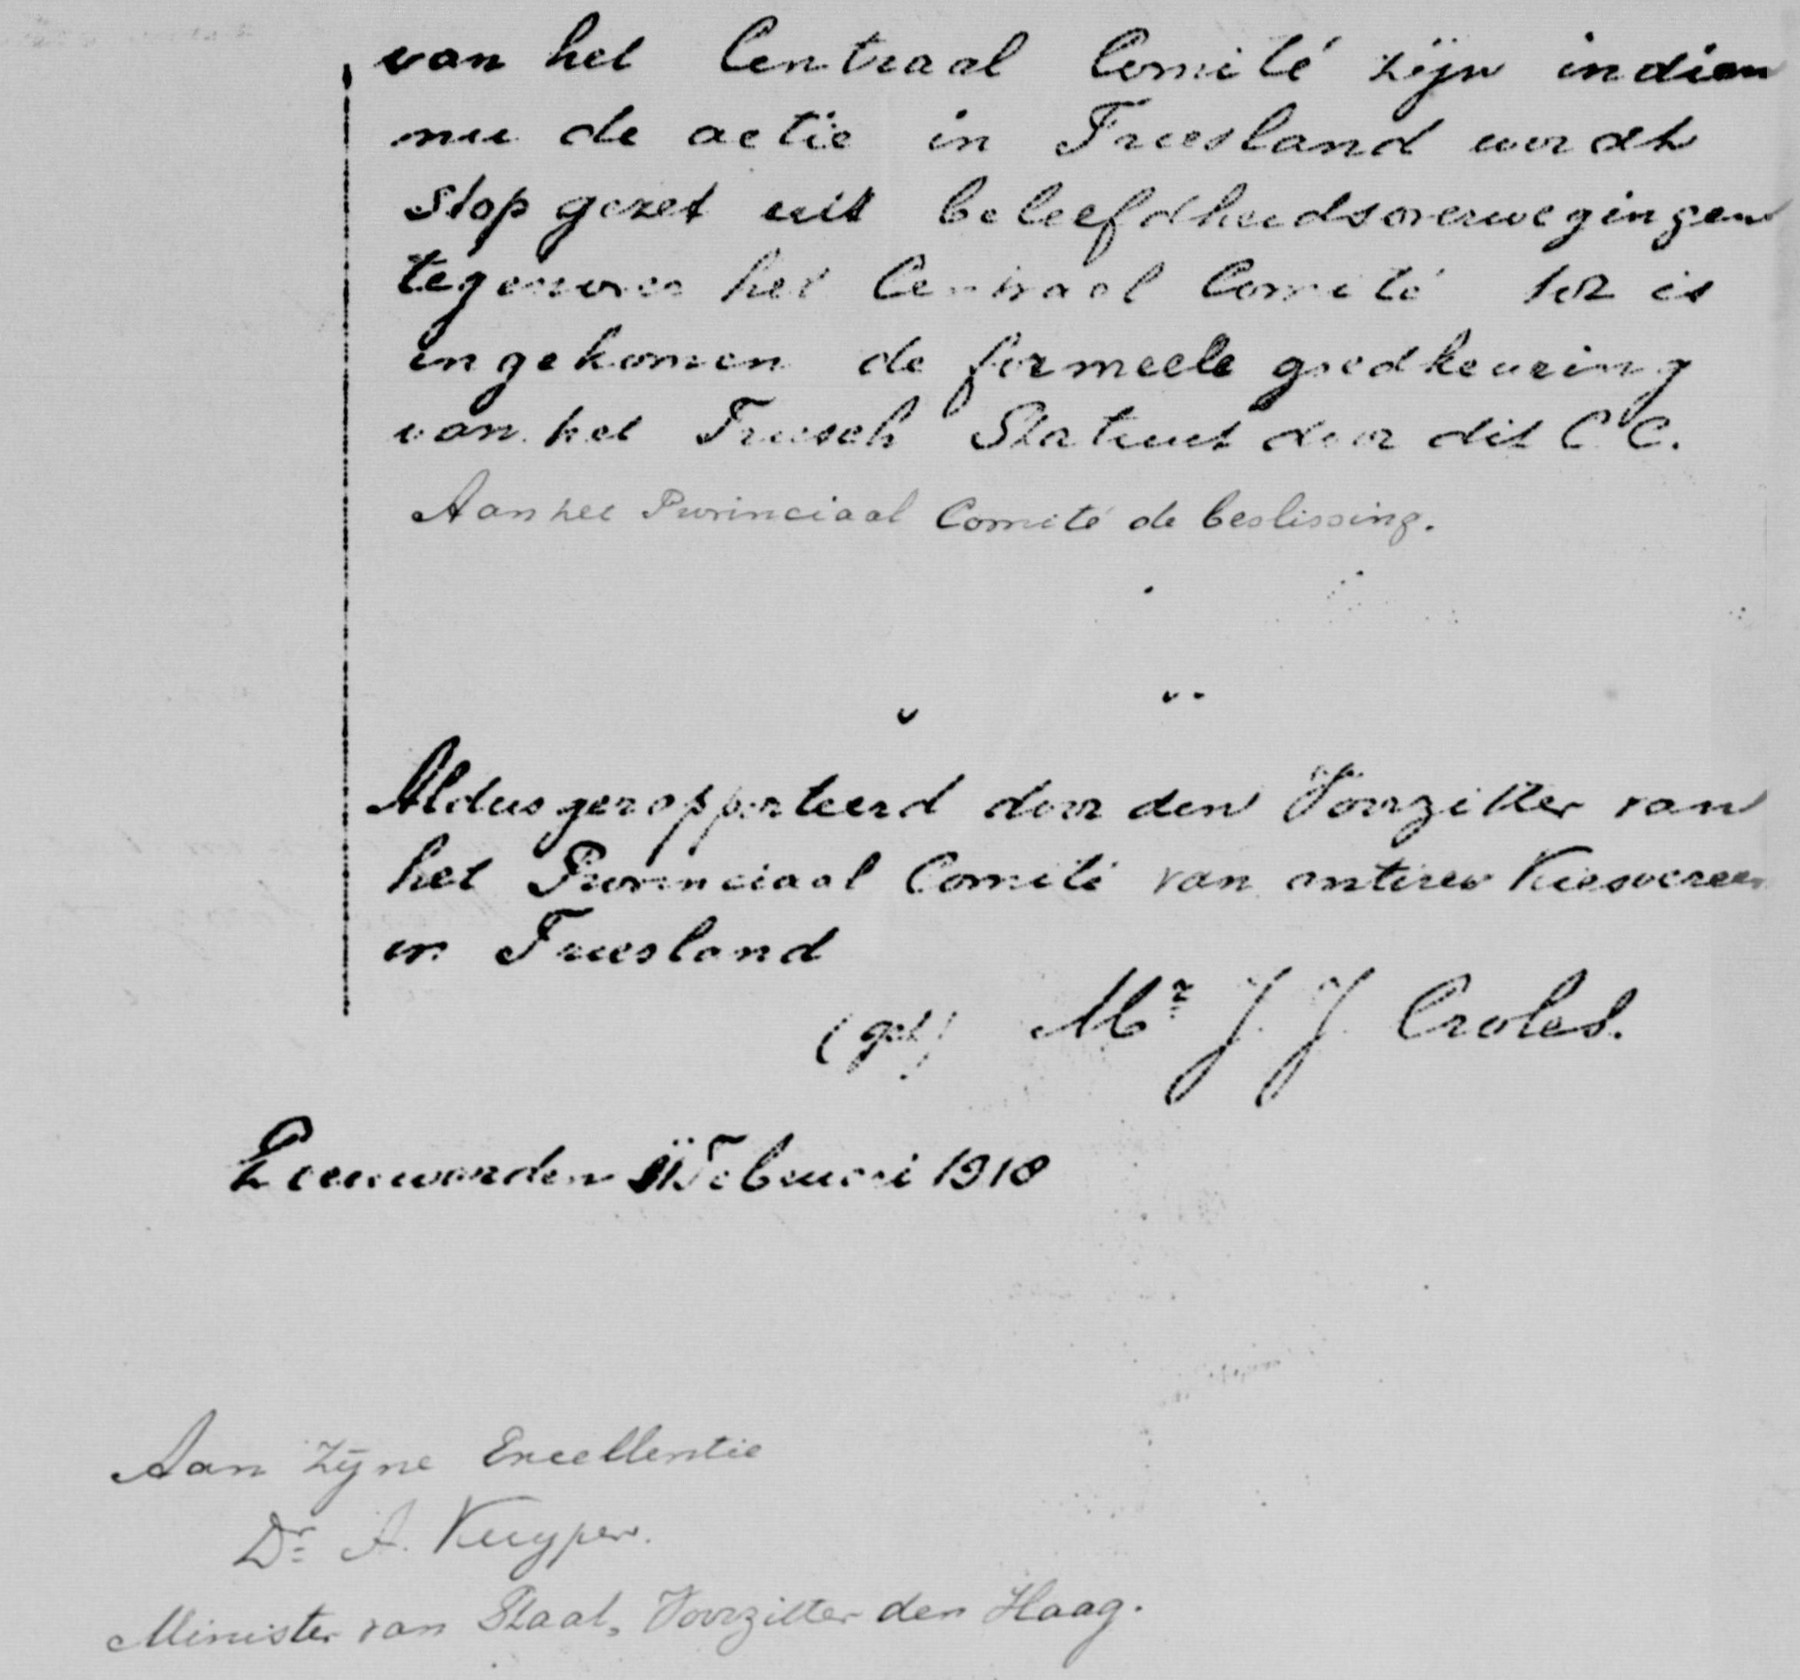 van het Centraal Comité zijn indien
nu de actie in Friesland wordt
stop gezet uit beleefdheidsoverwegingen
tegenover het Centraal Comité tot is
ingekomen de formeele goedkeuring
van het Friesch Statuut door dit C.C.
Aan het Provinciaal Comité de beslissing.
Aldus gerapporteerd door den Voorzitter van
het Provinciaal Comité van antirev Kiesvereen
in Friesland
(get) Mr J. J. Croles.
Leeuwarden Februari 1918
Aan Zijne Excellentie
Dr A. Kuyper.
Minister van Staat, Voorzitter den Haag.